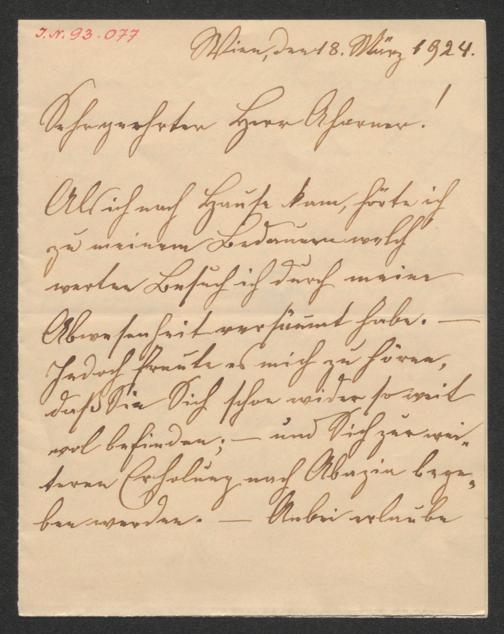 J.N. 93.077
Wien, den 18. März 1924.
Sehrgeehrter Herr Ahorner!
Als ich nach Hause kam, hörte ich
zu meinem Bedauern welch
werten Besuch ich durch meine
Abwesenheit versäumt habe. —
Jedoch freute es mich zu hören,
daß Sie Sich schon wider so weit
wol befinden; — und Sich zur wei-
teren Erholung nach Abazia bege-
ben werden. — Anbei erlaube